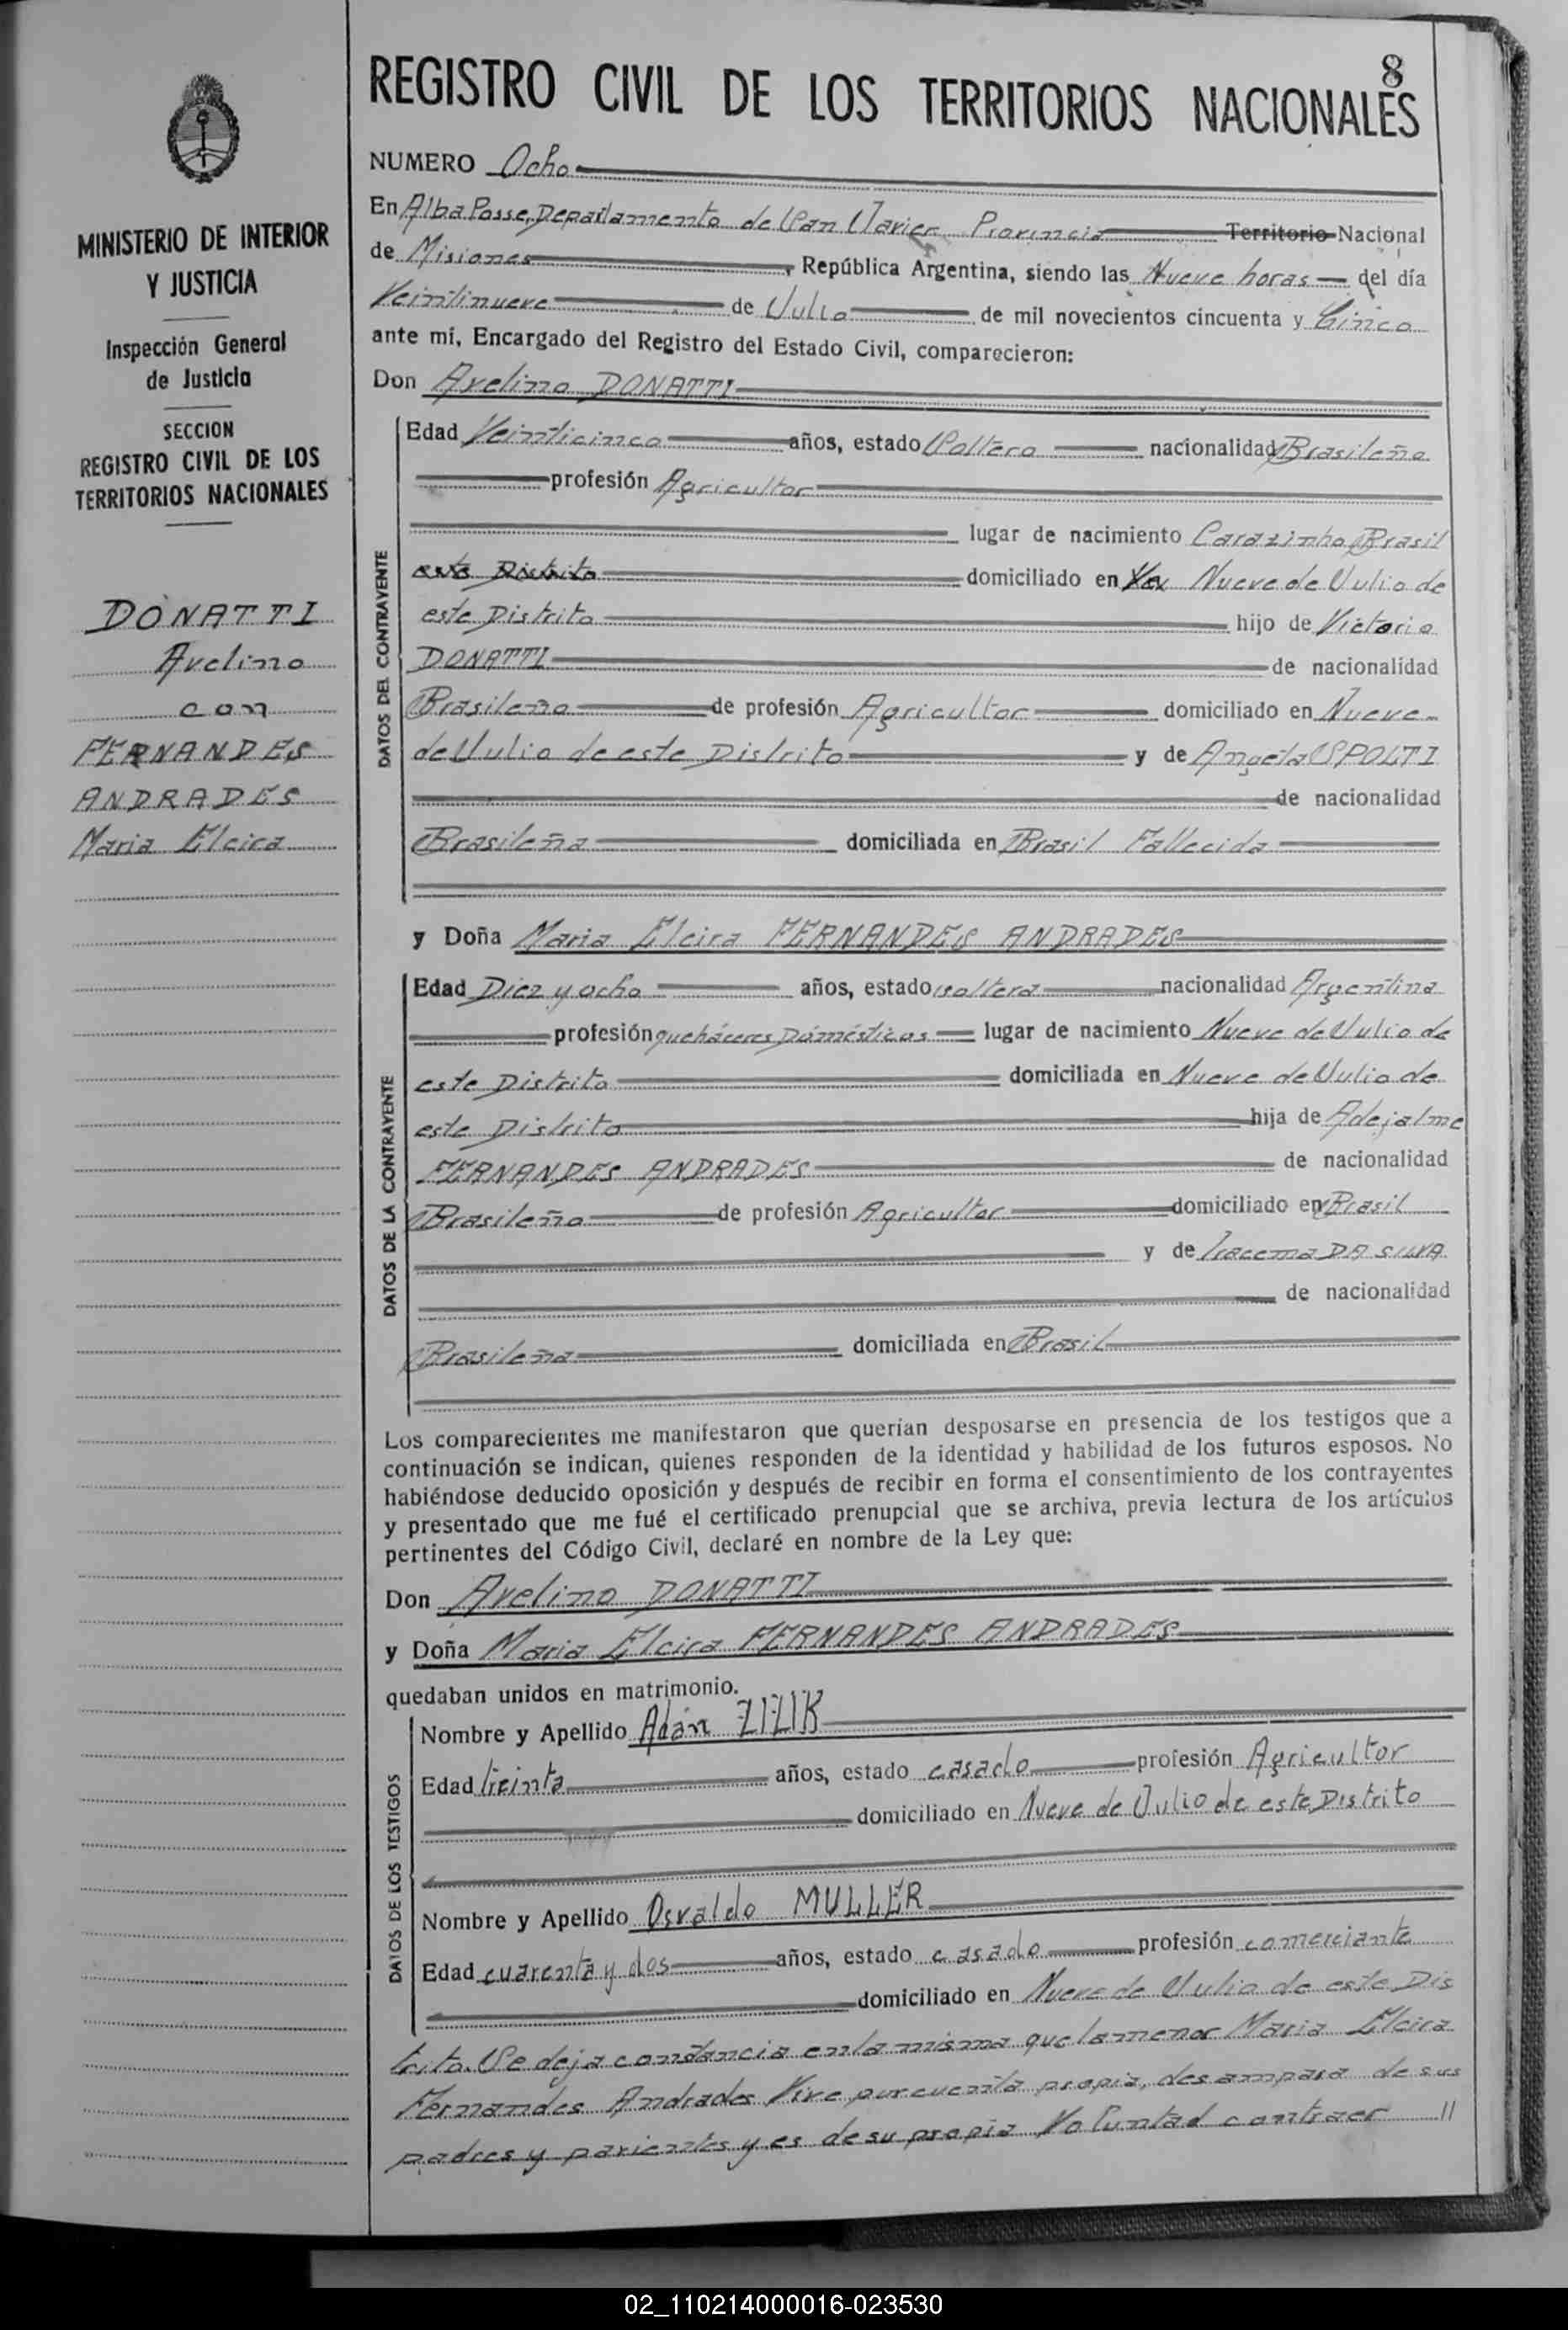 8
REGISTRO CIVIL DE LOS TERRITORIOS NACIONALES
MINISTERIO DE INTERIOR
Y JUSTICIA
Inspección General
de Justicia
SECCION
REGISTRO CIVIL DE LOS
TERRITORIOS NACIONALES
DONATTI
Avelino
con
FERNANDES
ANDRADES
Maria Elcira
NUMERO Ocho
En Alba Posse, Departamento de San Javier Provincia Territorio Nacional
de Misiones, República Argentina, siendo las Nueve horas del día
Veintinueve de Julio de mil novecientos cincuenta y Cinco
ante mí, Encargado del Registro del Estado Civil, comparecieron:
Don Avelino DONATTI
DATOS DEL CONTRAYENTE
Edad Veinticinco años, estado Soltero nacionalidad Brasileño
profesión Agricultor
lugar de nacimiento Carazinho Brasil
este Distrito domiciliado en Nueve de Julio de
este Distrito hijo de Victorio
DONATTI de nacionalidad
Brasileño de profesión Agricultor domiciliado en Nueve
de Julio de este Distrito y de Angela SPOLTI
de nacionalidad
Brasileña domiciliada en Brasil Fallecida
y Doña Maria Elcira FERNANDES ANDRADES
DATOS DE LA CONTRAYENTE
Edad Diez y ocho años, estado soltera nacionalidad Argentina
profesión queháceres Doméstícos lugar de nacimiento Nueve de Julio de
este Distrito domiciliada en Nueve de Julio de
este Distrito hija de Adejalme
FERNANDES ANDRADES de nacionalidad
Brasileño de profesión Agricultor domiciliado en Brasil
y de Iracema DA SILVA
de nacionalidad
Brasileña domiciliada en Brasil
Los comparecientes me manifestaron que querían desposarse en presencia de los testigos que a
continuación se indican, quienes responden de la identidad y habilidad de los futuros esposos. No
habiéndose deducido oposición y después de recibir en forma el consentimiento de los contrayentes
y presentado que me fué el certificado prenupcial que se archiva, previa lectura de los artículos
pertinentes del Código Civil, declaré en nombre de la Ley que:
Don Avelino DONATTI
y Doña Maria Elcira FERNANDES ANDRADES
quedaban unidos en matrimonio.
DATOS DE LOS TESTIGOS
Nombre y Apellido Adán ZIZIK
Edad treinta años, estado casado profesión Agricultor
domiciliado en Nueve de Julio de este Distrito
Nombre y Apellido Osvaldo MULLER
Edad cuarenta y dos años, estado casado profesión comerciante
domiciliado en Nueve de Julio de este Dis
trito. Se deja constancia en la misma que la menor Maria Elcira
Fernandes Andrades Vive por cuenta propia, desampara de sus
padres y parientes y es de su propia Voluntad contraer //
02_110214000016-023530